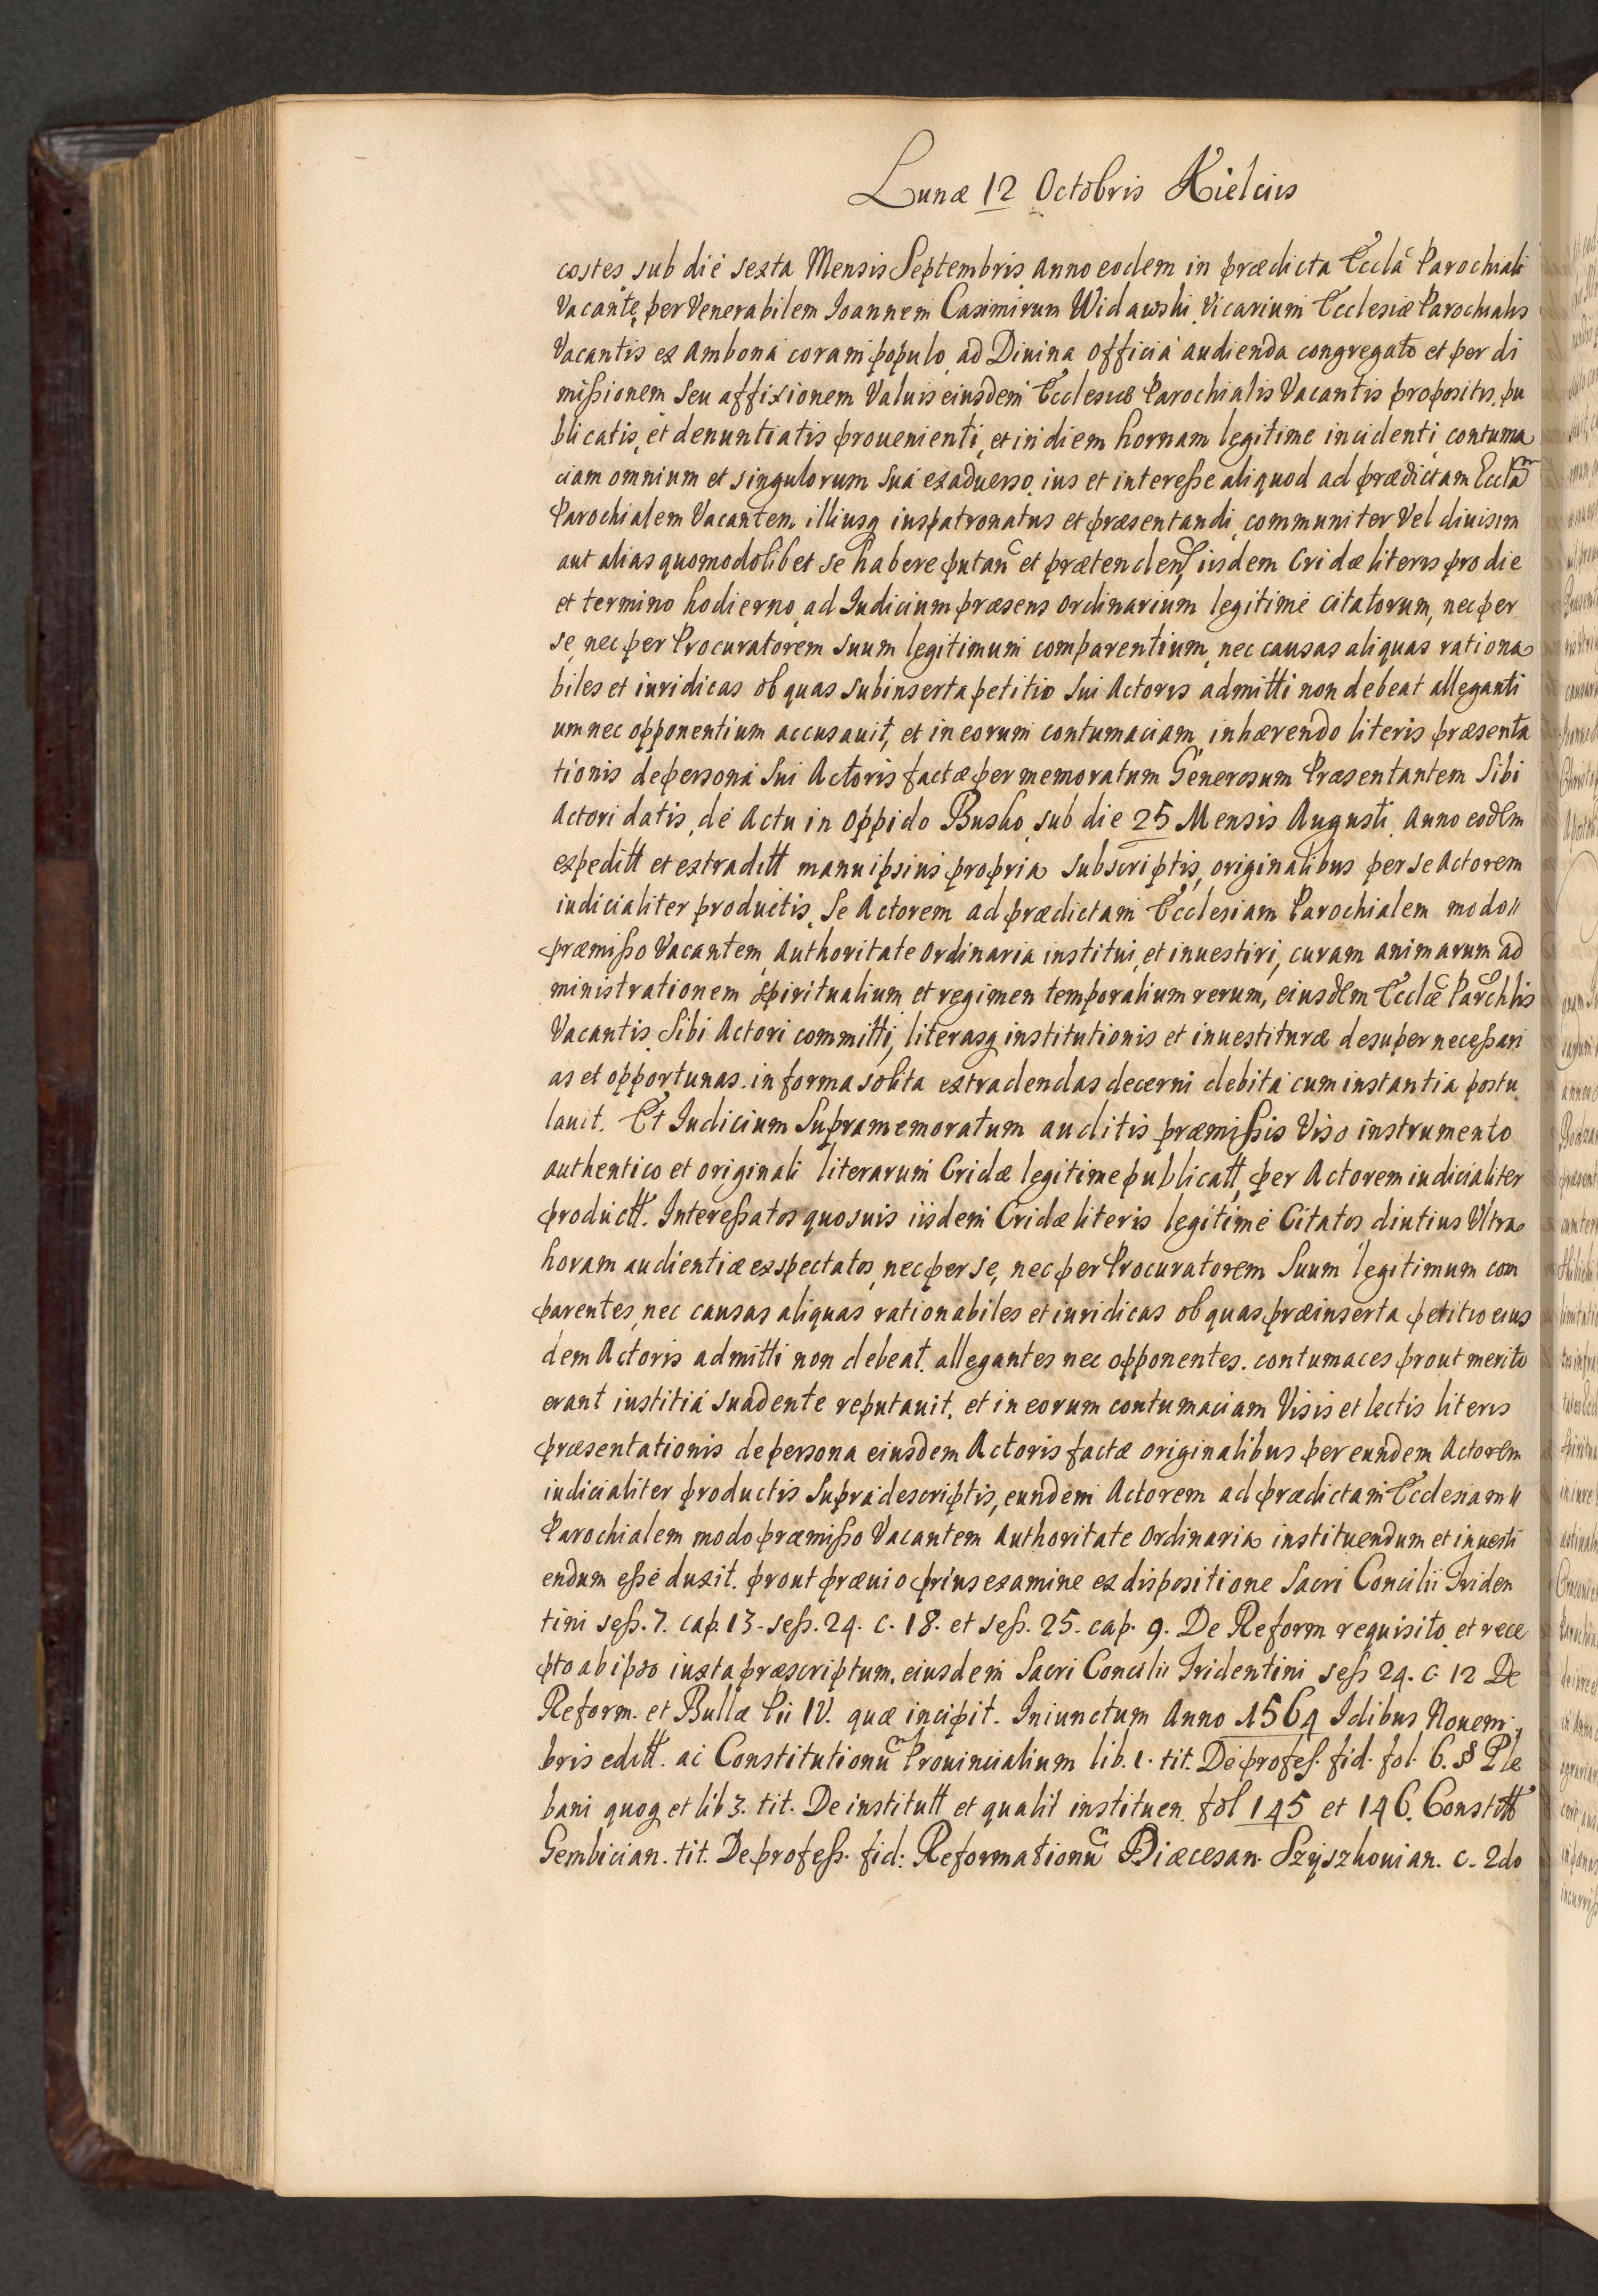 Lunæ 12 Octobris Kielciis
costes, sub die sexta Mensis Septembris Anno eodem in prædicta Eccla Parochiali
Vacante, per Venerabilem Ioannem Casimirum Widawski Vicarium Ecclesiæ Parochialis
Vacantis ex Ambona coram populo ad Diuina Officia audienda congregato et per di
mißionem seu affixionem Valuis eiusdem Ecclesiæ Parochialis Vacantis propositis, pu
blicatis, et denuntiatis prouenienti, et in diem hornam legitime incidenti, contuma
ciam omnium et singulorum sua exaduerso, ius et intereße aliquod ad prædictam Ecclam
Parochialem Vacantem, illiusq iuspatronatus et præsentandi, communiter Vel diuisim
aut alias quomodolibet se habere putan et prætenden, iisdem Cridæ literis pro die
et termino hodierno, ad Iudicium præsens Ordinarium legitime citatorum, nec per
se, nec per Procuratorem suum legitimum comparentium, nec causas aliquas rationa
biles et iuridicas ob quas subinserta petitio sui Actoris admitti non debeat alleganti
um nec opponentium accusauit, et in eorum contumaciam, inhærendo literis præsenta
tionis de persona sui Actoris factæ per memoratum Generosum Præsentantem Sibi
Actori datis, de Actu in Oppido Busko sub die 25 Mensis Augusti Anno eodem
expeditt et extraditt manu ipsius propria subscriptis, originalibus per se Actorem
iudicialiter productis, Se Actorem ad prædictam Ecclesiam Parochialem modo
præmißo Vacantem, Authoritate Ordinaria institui, et inuestiri, curam animarum ad
ministrationem spiritualium et regimen temporalium rerum, eiusdem Ecclæ Parochlis
Vacantis Sibi Actori committi, literasq institutionis et inuestituræ desuper neceßari
as et opportunas in forma solita extradendas decerni debita cum instantia postu
lauit. Et Iudicium Supramemoratum auditis præmißis Viso instrumento
authentico et originali literarum Cridæ legitime publicatt, per Actorem iudicialiter
productt. Intereßatos quosuis iisdem Cridæ literis legitime Citatos, diutius Vltra
horam audientiæ expectatos, nec per se, nec per Procuratorem Suum legitimum com
parentes, nec causas aliquas rationabiles et iuridicas ob quas præinserta petitio eius
dem Actoris admitti non debeat, allegantes nec opponentes, contumaces prout merito
erant iustitia suadente reputauit, et in eorum contumaciam Visis et lectis literis
præsentationis de persona eiusdem Actoris factæ originalibus per eundem Actorem
iudicialiter productis supradescriptis, eundem Actorem ad prædictam Ecclesiam
Parochialem modo præmißo Vacantem Authoritate Ordinaria instituendum et inuesti
endum eße duxit. prout præuio prius examine ex dispositione Sacri Concilii Triden
tini seß. 7. cap. 13. seß. 24. c. 18. et seß. 25. cap. 9. De Reform requisito et rece
pto ab ipso iuxta præscriptum eiusdem Sacri Concilii Tridentini seß 24. c. 12 De
Reform. et Bullæ Pii IV. quæ incipit. Iniunctum Anno 1564 Idibus Nouem
bris editt. ac Constitutionum Prouincialium lib. 1. tit. De profeß. fid. fol. 6. § Ple
bani quoq et lib 3. tit. De institutt et qualit instituen. fol 145 et 146. Constitt
Gembician. tit. De profeß. fid: Reformationum Diæcesan. Szyszkouian. c. 2do